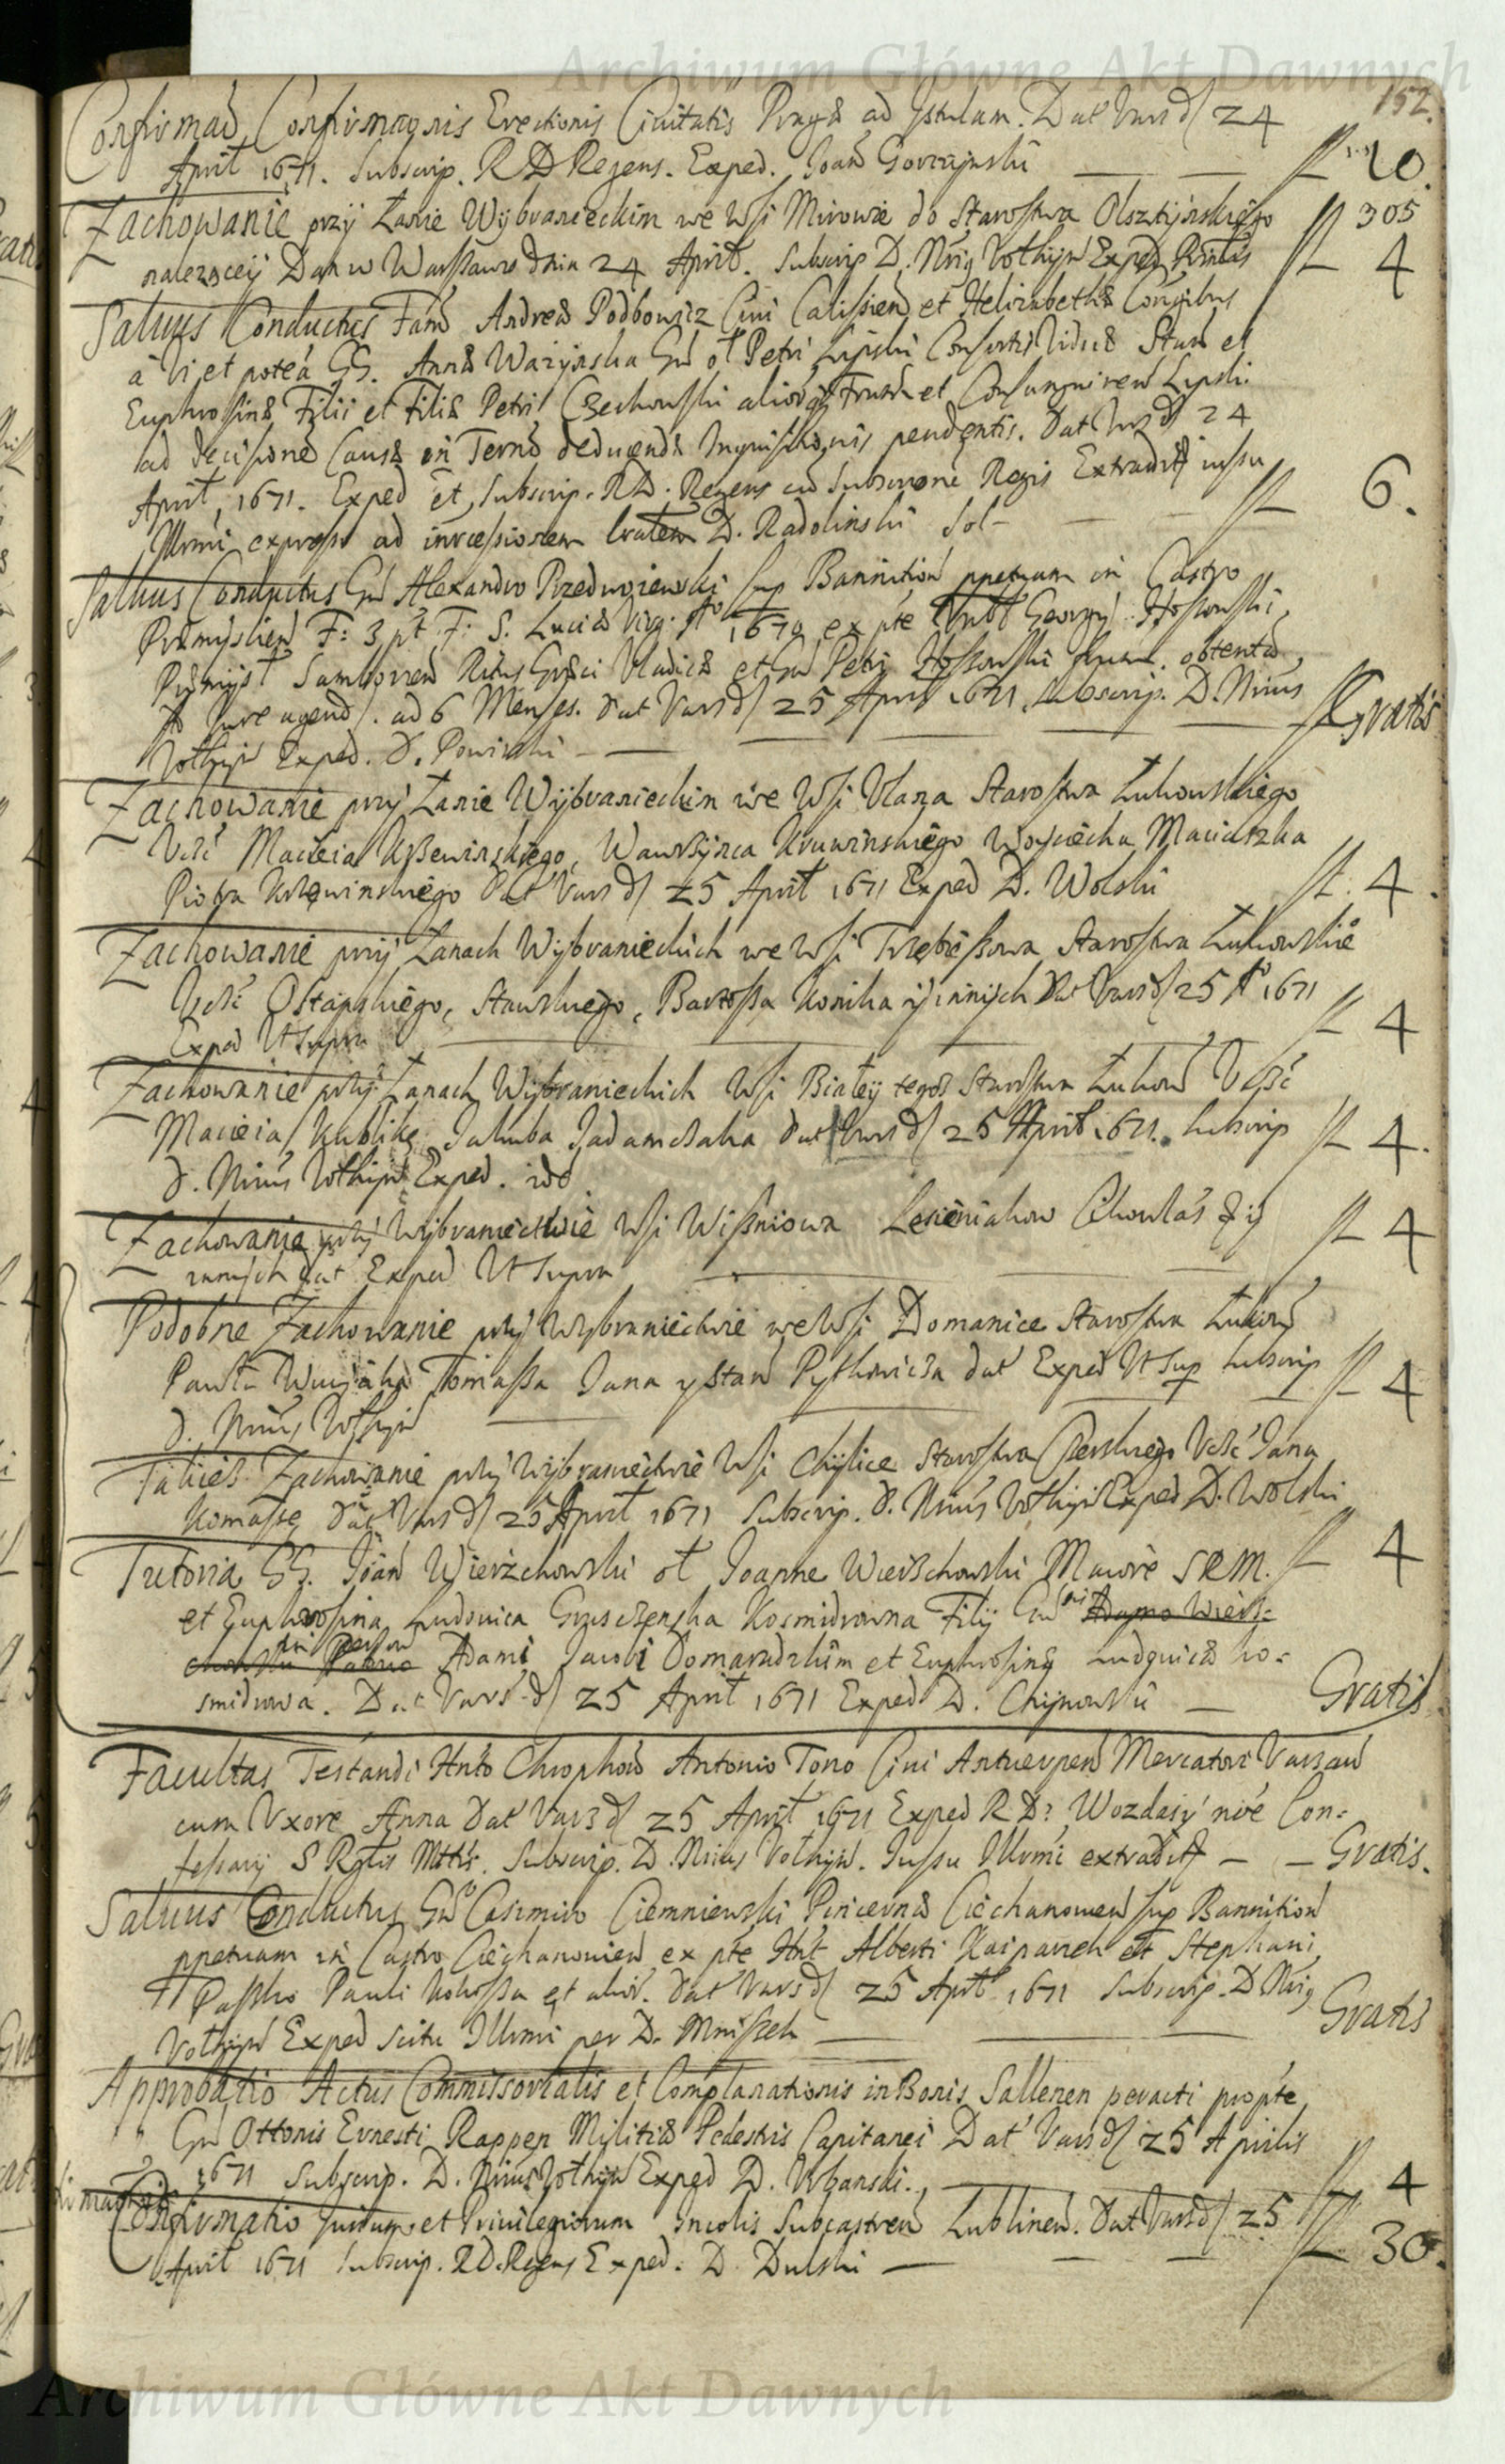 Archiwum Główne Akt Dawnych
152.
Confirmaõ Confirmaonis Erectionis Civitatis Pragæ ad Istulam. Dat Vars d. 24
April 1671. Subscrip. R D Regens. Exped. Joañ Gorczynski fl 10.
Zachowanie przÿ Łanie Wÿbranieckim we Wsi Mirowie do Starostwa Olsztÿnskiego fl 305
nalezącÿ Dan w Warszawie dnia 24 April. Subscrip D. Nrig Vothÿn Exped fl 4
Saluus Conductus Fam̃ Andreæ Podbowicz Ciui Calissieñ et Helizabethæ Congibus
à Vi et poteã GG. Anna Ważÿnska Gñ ol Petri Lipski Consortis Viduæ Stañ et
Euphrosinæ Filii et Filiæ Petri Czechowski aliorq Fratrũ et Consanguineoñ Lipski
ad decisionẽ Causæ in Termõ deducendæ Inquisitionis pendentis. Dat Vars d. 24
April 1671. Exped et Subscrip. R D. Regens cũ Subscriione Regis Extradit iussu
Illrmi expresso ad intercessionem D. Radolinski Sol- fl 6.
Saluus Conductus Gñ Alexandro Przedwojewski Sup Bannition ppetuam in Castro
Præmislieñ F: 3 pt F: S. Luciæ Virg. Aº 1670 ex pte Georgÿ Hoszowski
Præmÿsl Samborieñ Ritus Græci Vladicæ et Gñ Petri Hoszowski obtentã
Jure agend. ad 6 Menses. Dat Vars d. 25 April 1671 Subscrip. D. Nrius fl Gratis
Vothÿn Exped. D. Powinski
Zachowanie przÿ Łanie Wÿbranieckim we Wsi Vlana Starostwa Łukowskiego
Vcść Macieia Krzewinskiego, Wawrzÿnca Kruwinskiego Woÿciecha Maciaszka
Piotra Krzewinskiego Dat Vars d. 25 April 1671 Exped D. Wolski fl. 4.
Zachowanie przÿ Łanach Wÿbranieckich we Wsi Trzebieszowa Starostwa Łukowskie
Vcść Ostapskiego, Stawskiego, Bartosza Konika ÿ innÿch Dat Vars d. 25 Aº 1671
Exped Vt Supra fl 4
Zachowanie przÿ Łanach Wÿbranieckich Wsi Białeÿ tegoż Starostwa Łukow Vcść
Macieia Kublikę Jakuba Jadamczaka Dat Vars d. 25 April 1671. Subscrip fl 4.
D. Nrius Vothÿn Exped. idẽ
Zachowanie przÿ Wÿbraniectwie Wsi Wiszniowa Lesieniakow
innÿch Dat Exped Vt Supra fl 4
Podobne Zachowanie przÿ Wÿbraniectwie we Wsi Domanice Starostwa Łukow
Pawła Tomasza Jana y Stañ Pÿthowicza Dat Exped Vt Sup Subscrip fl 4
D. Nrius Vothÿn
Takież Zachowanie przÿ Wÿbraniectwie Wsi Chÿlice Starostwa Czerskiego Vcść Jana
Komasse Dat Vars d. 25 April 1671 Subscrip. D. Nrius Vothÿn Exped D. Wolski
Tutoria GG. Joañ Wierzchowski ol Joanne Wierzchowski Maiore SRM. fl 4
et Euphrosina Ludouica Gruszczenska Kosmidrowna Filÿ Gñ Adamo Wierz-
chowski
Adami Jacobi Domaradzkim et Euphrosinę Ludouicæ Ko-
smidrowa. Dat Vars d. 25 April 1671 Exped D. Chÿnowski Gratis
Facultas Testandi Hnto Chrophoro Antonio Tono Ciui Antuerpeñ Mercatori Varsau
cum Vxore Anna Dat Vars d. 25 April 1671 Exped R D. Wozdasÿ Con-
fessarÿ S Rgtis Mttis. Subscrip. D. Nrius Vothÿn. Jussu Illrmi extradit Gratis.
Saluus Conductus Gño Casimiro Ciemniewski Pincernæ Ciechanowieñ Sup Bannition
ppetuam in Castro Ciechanowieñ ex pte Hnt Alberti et Stephani
Paszko Pauli Kokossa et alior. Dat Vars d. 25 April 1671 Subscrip. D. Nrig Gratis
Vothÿn Exped scitu Illrmi per D. Mniszek
Approbatio Actus Commissorialis et Complanationis in Bonis Sallenen peracti pro pte
Gñ Ottonis Ernesti Rappen Militiæ Pedestris Capitanei Dat Vars d. 25 Aprilis
1671 Subscrip. D. Nrius Vothÿn Exped D. Vrbanski. fl 4
Confirmatio Jurium et Priuilegiorum Incolis Subcastreñ Lublineñ. Dat Vars d. 25
April 1671 Subscrip. R D. Regens Exped. D. Dulski fl 30.
Archiwum Główne Akt Dawnych